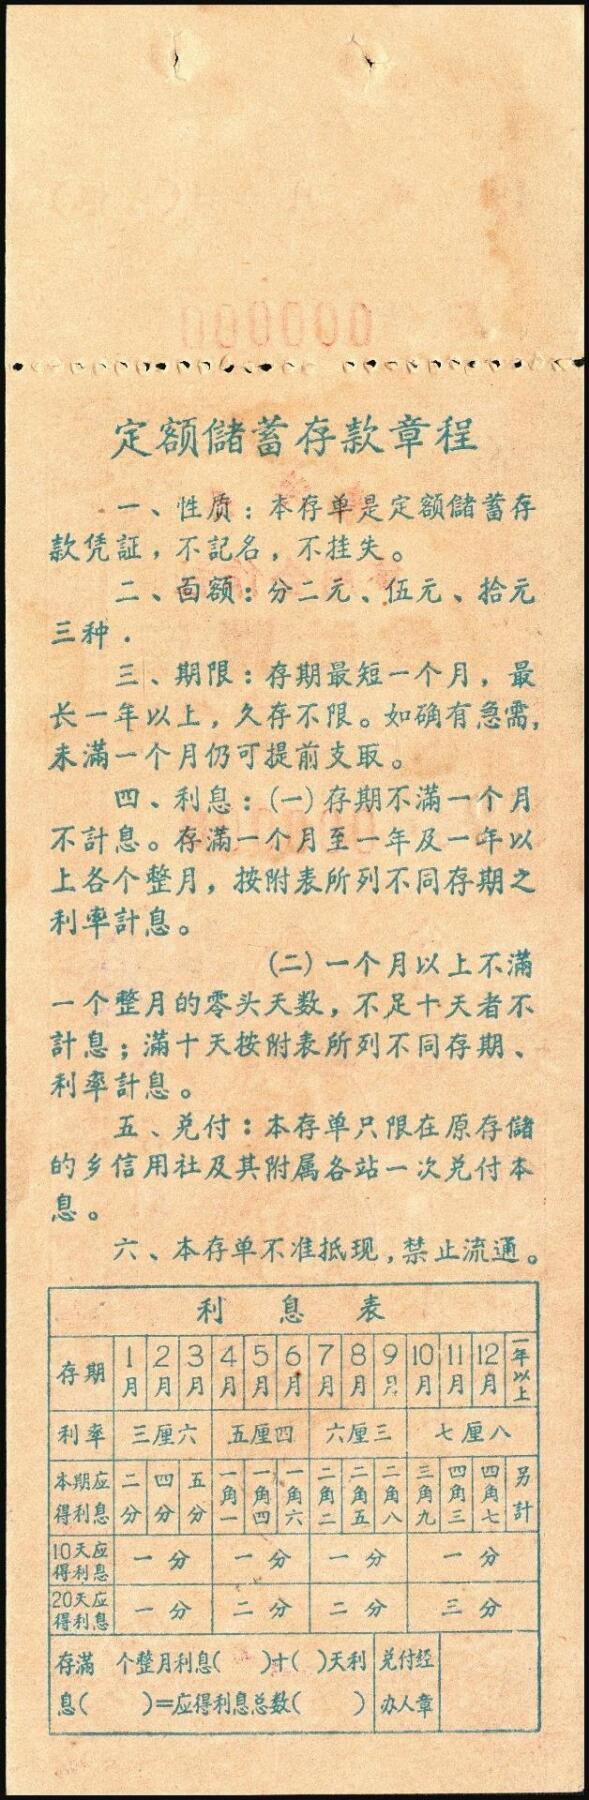 000000
定额儲蓄存款章程
一、性质：本存单是定额儲蓄存
款凭証，不記名，不挂失。
二、面额：分二元、伍元、拾元
三种．
三、期限：存期最短一个月，最
长一年以上，久存不限。如确有急需，
未滿一个月仍可提前支取。
四、利息：(一)存期不滿一个月
不計息。存滿一个月至一年及一年以
上各个整月，按附表所列不同存期之
利率計息。
(二)一个月以上不滿
一个整月的零头天数，不足十天者不
計息；滿十天按附表所列不同存期、
利率計息。
五、兑付：本存单只限在原存儲
的乡信用社及其附属各站一次兑付本
息。
六、本存单不准抵现，禁止流通。
利息表
存期 1月 2月 3月 4月 5月 6月 7月 8月 9月 10月 11月 12月 一年以上
利率 三厘六 五厘四 六厘三 七厘八
本期应得利息 二分 四分 五分 一角一 一角四 一角六 二角二 二角五 二角八 三角九 四角三 四角七 另計
10天应得利息 一分 一分 一分 一分
20天应得利息 一分 二分 二分 三分
存滿 个整月利息( )十( )天利 兑付经
息( )=应得利息总数( ) 办人章